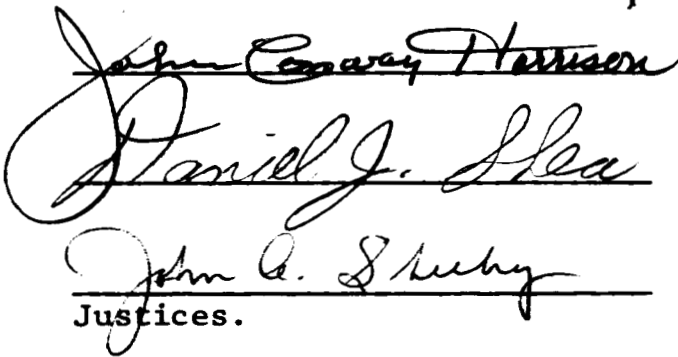 John Conway Harrison
Daniel J. Shea
John C. Sheehy
Justices.